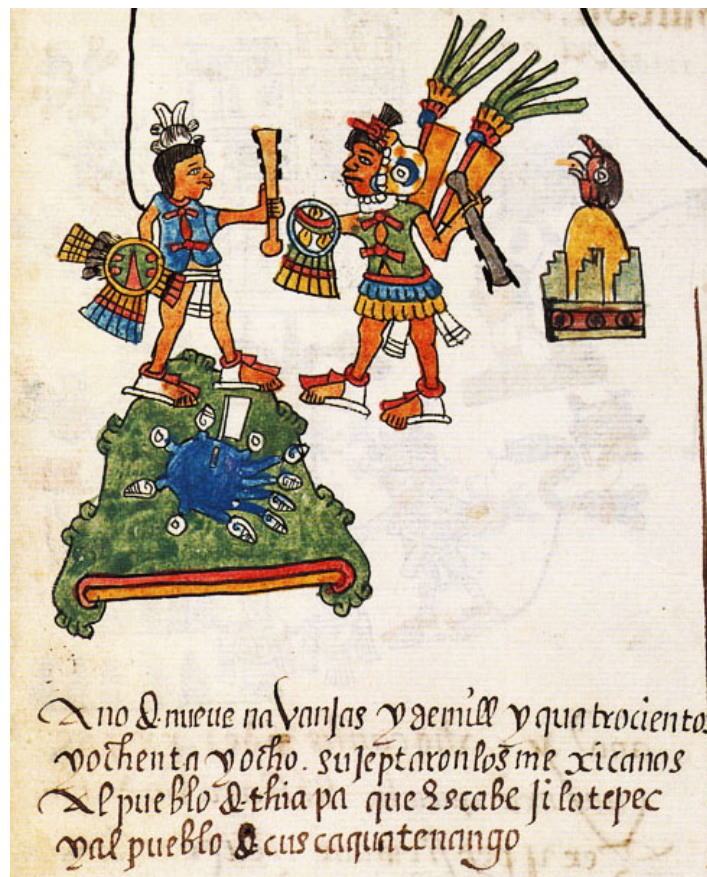 Ano de nueve navanjas y de mill y quatrocientos
y ochenta y ocho. sujeptaron los mexicanos
Al pueblo de thiapa que es cabe jilotepec
y al pueblo de cuscaquatenango